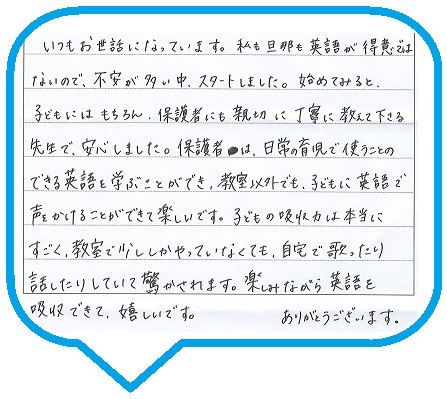 いつもお世話になっています。私も旦那も英語が得意では
ないので、不安が多い中、スタートしました。始めてみると、
子どもにはもちろん、保護者にも親切に丁寧に教えて下さる
先生で、安心しました。保護者は、日常の育児で使うことの
できる英語を学ぶことができ、教室以外でも、子どもに英語で
声をかけることができて楽しいです。子どもの吸収力は本当に
すごく、教室で少ししかやっていなくても、自宅で歌ったり
話したりしていて驚かされます。楽しみながら英語を
吸収できて、嬉しいです。 ありがとうございます。